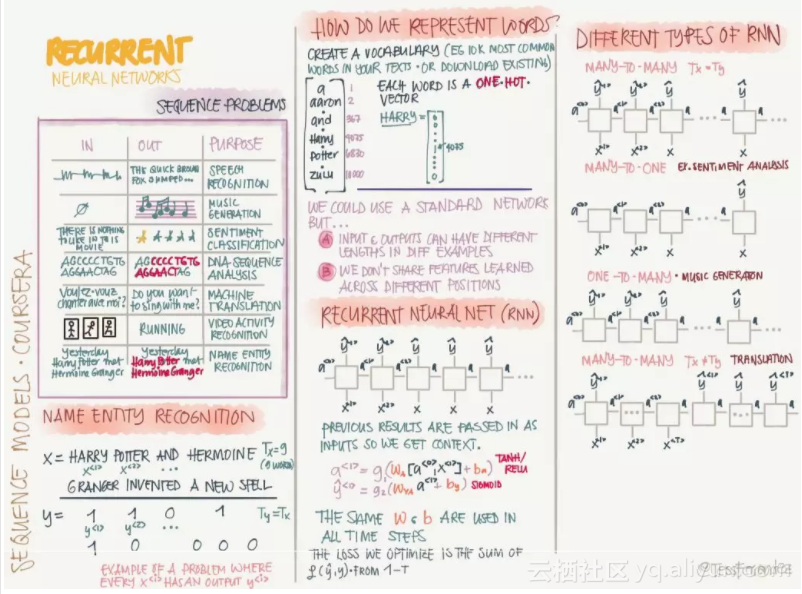 RECURRENT
NEURAL NETWORKS
SEQUENCE PROBLEMS
IN OUT PURPOSE
THE QUICK BROWN FOX JUMPED... SPEECH RECOGNITION
MUSIC GENERATION
THERE IS NOTHING TO LIKE IN THIS MOVIE SENTIMENT CLASSIFICATION
AGCCCCTGTG AGGAACTAG AGCCCCTGTG AGGAACTAG DNA SEQUENCE ANALYSIS
Voulez-vous chanter avec moi? Do you want to sing with me? MACHINE TRANSLATION
RUNNING VIDEO ACTIVITY RECOGNITION
Yesterday Harry Potter met Hermione Granger Yesterday Harry Potter met Hermione Granger NAME ENTITY RECOGNITION
SEQUENCE MODELS · COURSERA
NAME ENTITY RECOGNITION
X = HARRY POTTER AND HERMOINE Tx=9
x<1> x<2> ... (9 WORDS)
GRANGER INVENTED A NEW SPELL
y = 1 1 0 1 Ty=Tx
y<1> y<2> ...
1 0 0 0 0
EXAMPLE OF A PROBLEM WHERE
EVERY x<i> HAS AN OUTPUT y<i>
HOW DO WE REPRESENT WORDS?
CREATE A VOCABULARY (EG 10K MOST COMMON
WORDS IN YOUR TEXTS · OR DOWNLOAD EXISTING)
a 1
aaron 2
and 367
Harry 4075
Potter 6830
zulu 10000
EACH WORD IS A ONE·HOT·
VECTOR
HARRY =
0
0
0
1
0
4075
WE COULD USE A STANDARD NETWORK
BUT...
A INPUT & OUTPUTS CAN HAVE DIFFERENT
LENGTHS IN DIFF EXAMPLES
B WE DON'T SHARE FEATURES LEARNED
ACROSS DIFFERENT POSITIONS
RECURRENT NEURAL NET (RNN)
ŷ<1> ŷ<2> ŷ ŷ ŷ
a<0> a<1> a a a a ...
x<1> x<2> x x x
PREVIOUS RESULTS ARE PASSED IN AS
INPUTS SO WE GET CONTEXT.
a<1> = g₁(Wa[a<0>,x<1>] + ba) TANH/
RELU
ŷ<1> = g₂(Wya a<1> + by) SIGMOID
THE SAME W & b ARE USED IN
ALL TIME STEPS
THE LOSS WE OPTIMIZE IS THE SUM OF
ℒ(ŷ,y) · FROM 1-T
DIFFERENT TYPES OF RNN
MANY-TO-MANY Tx = Ty
ŷ<1> ŷ<2> ŷ ŷ
a<0> a<1> a a ... a
x<1> x<2> x x
MANY-TO-ONE EX. SENTIMENT ANALYSIS
ŷ
a<0> a<1> a a ... a
x<1> x<2> x x
ONE-TO-MANY · MUSIC GENERATION
MANY-TO-MANY Tx ≠ Ty TRANSLATION
ŷ<1> ŷ<T>
x<1> x<2> x<T>
云栖社区 yq.aliyun.com